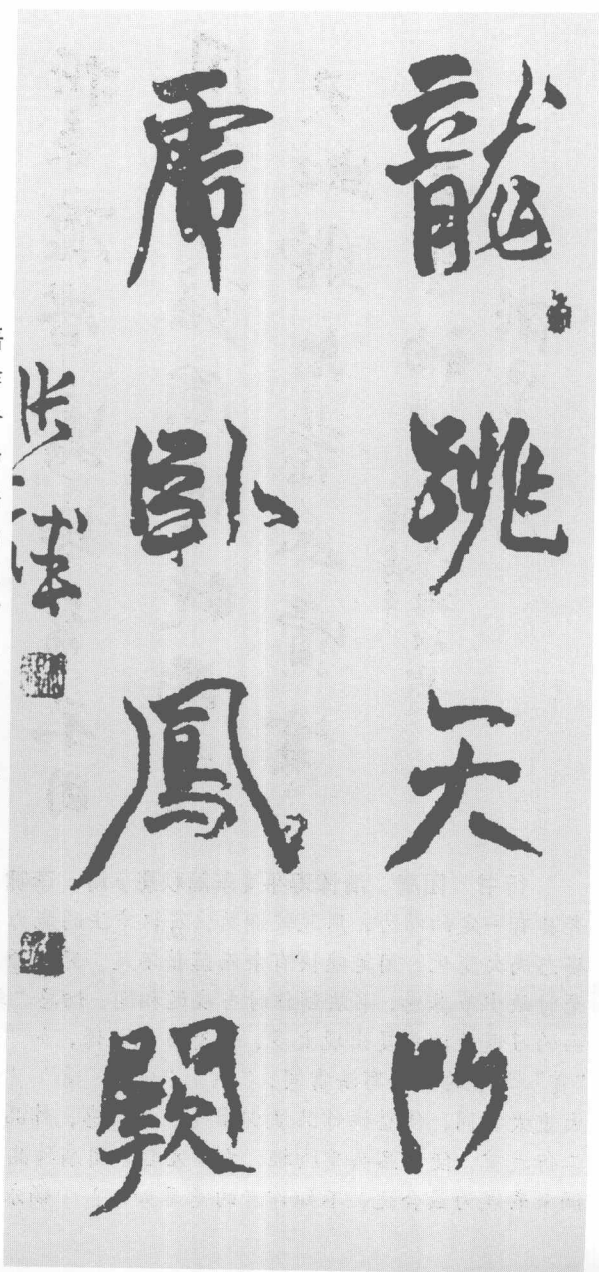 龍跳天門
虎卧鳳闕